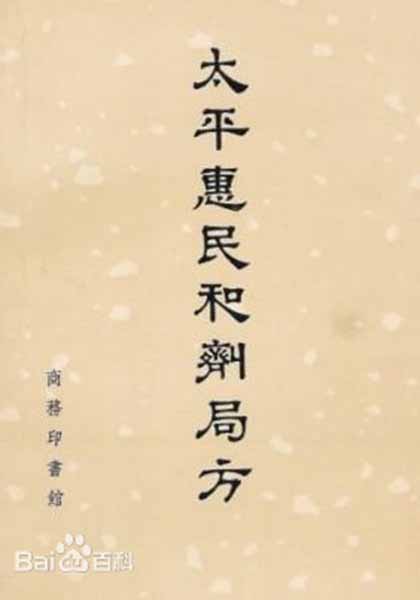 太平惠民和劑局方
商務印書館
Bai百科